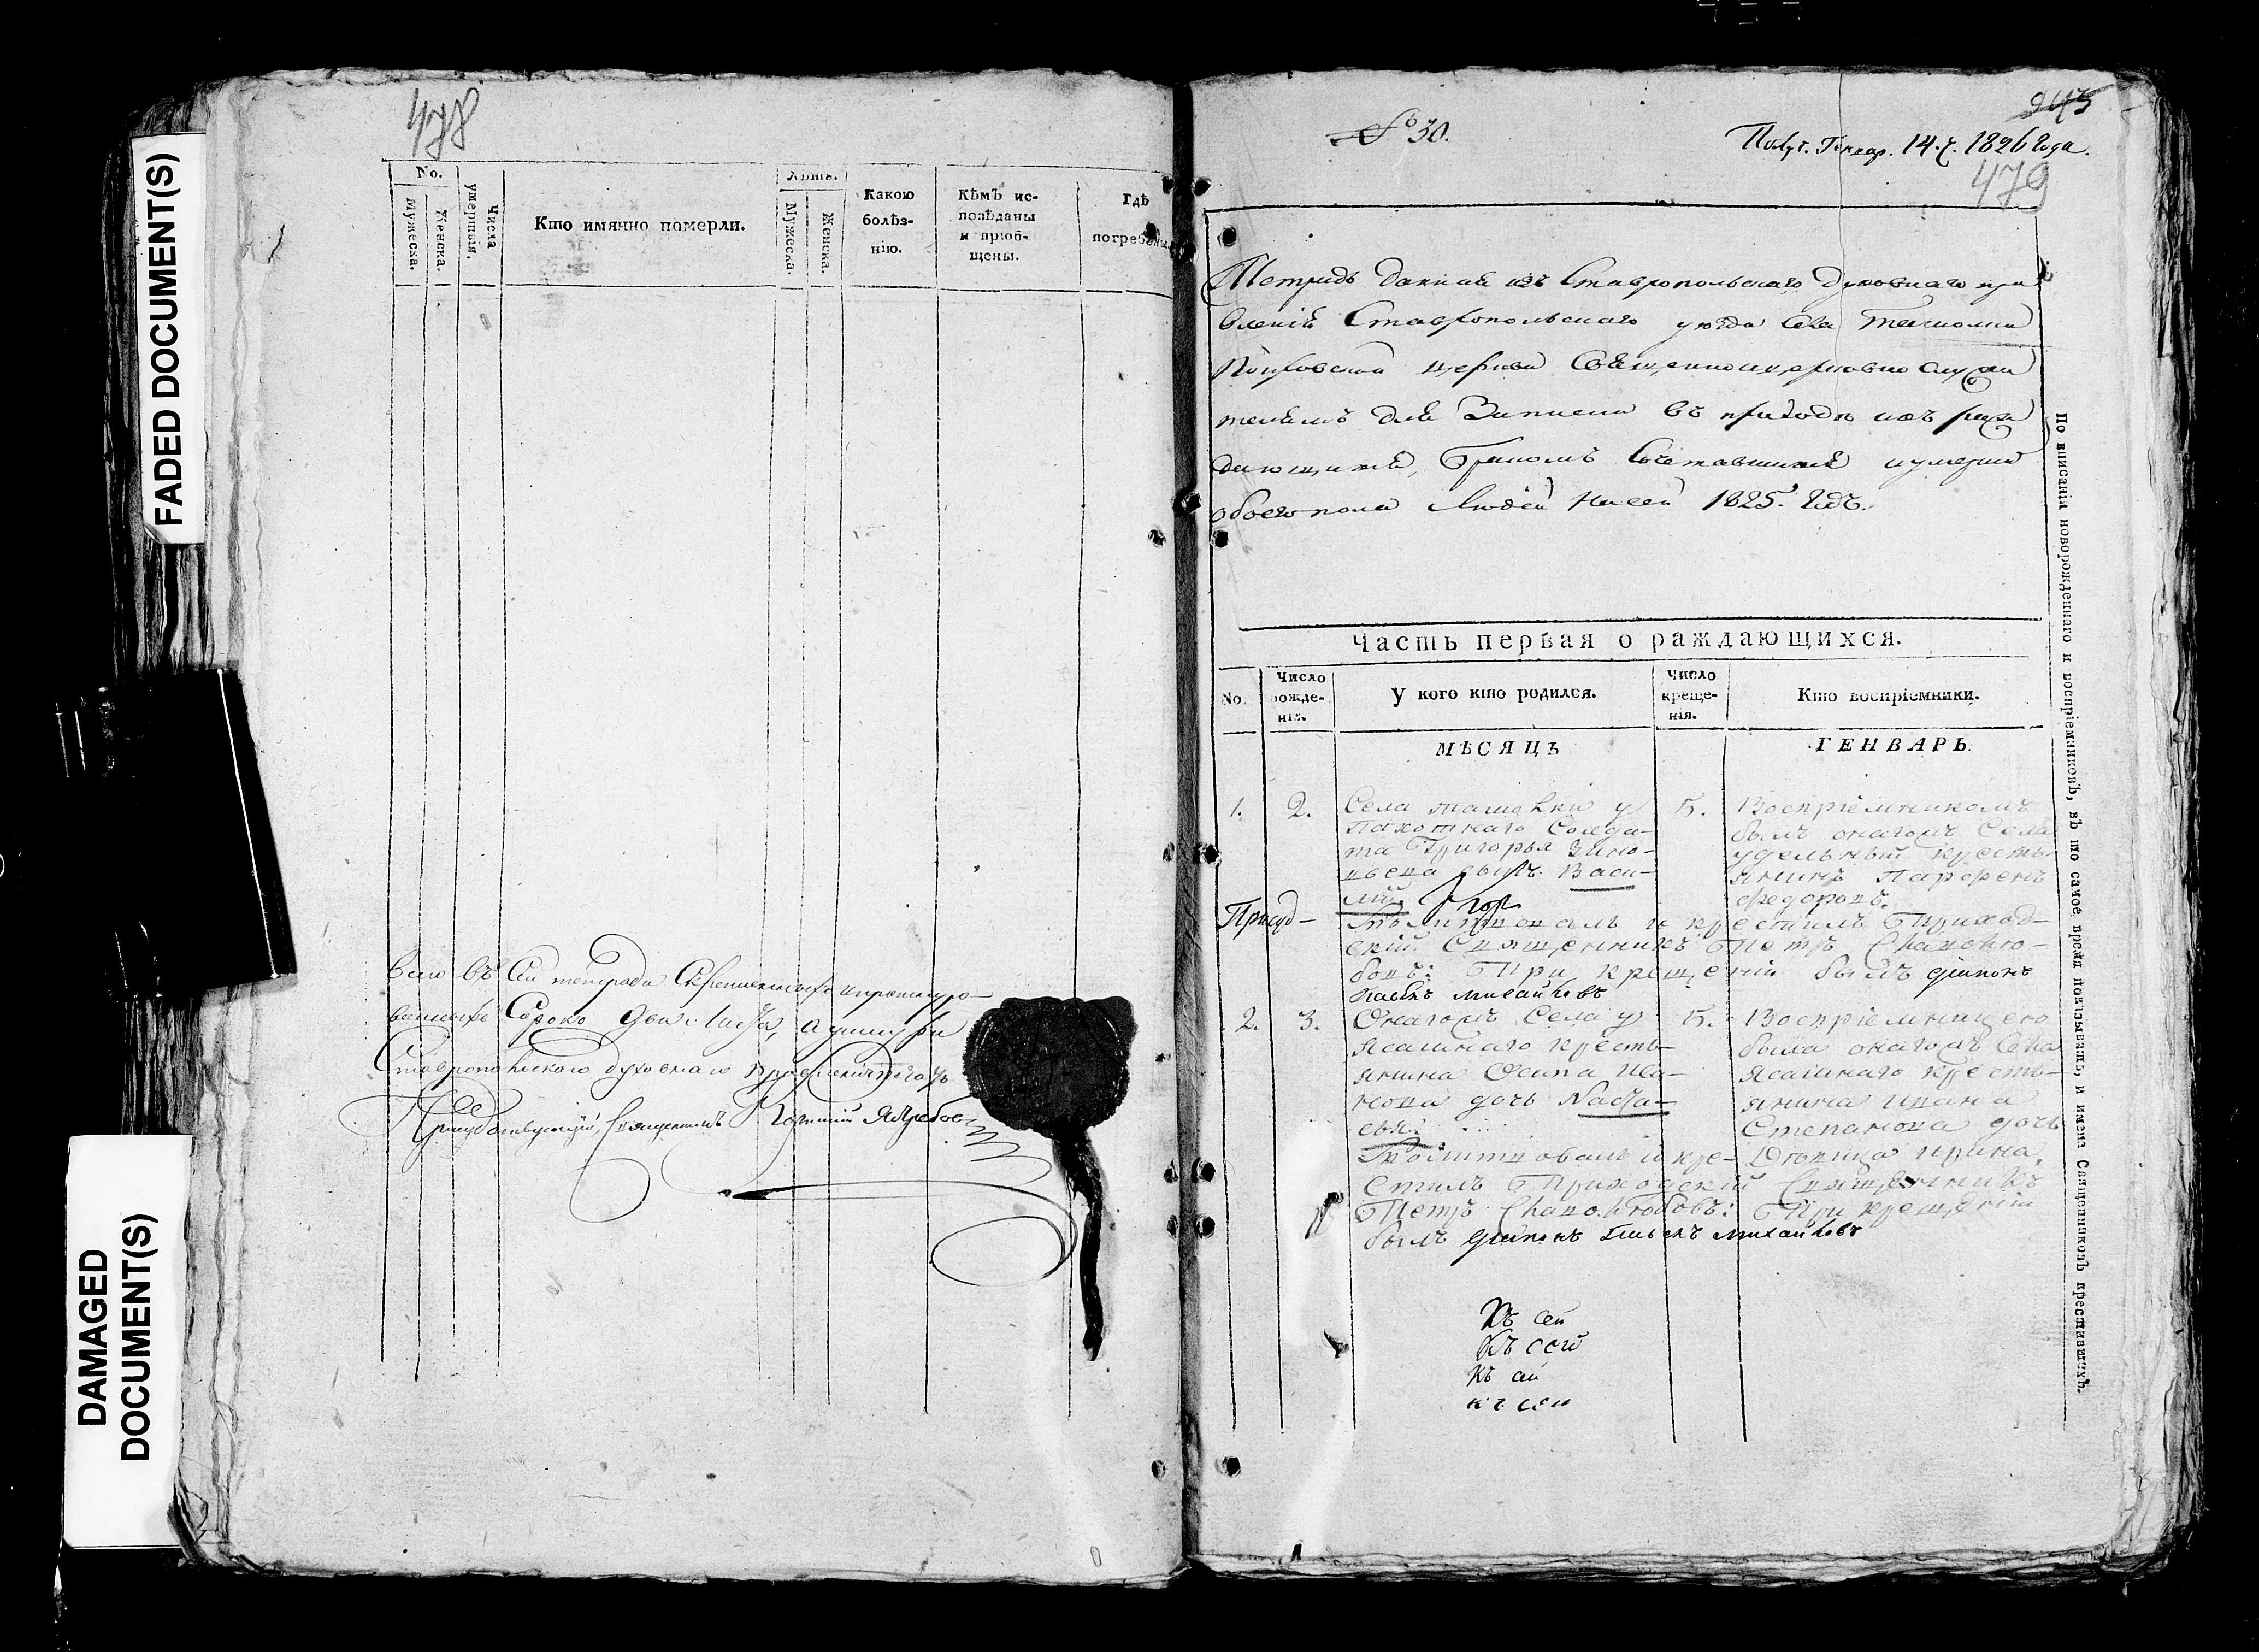 FADED DOCUMENT(S)
DAMAGED
DOCUMENT(S)
478
No.
Мужеска.
Женска.
Числа
умерших.
Кто имянно померли.
Лѣта.
Мужеска.
Женска.
Какою
болѣз-
нію.
Кѣмъ ис-
повѣданы
и пріоб-
щены.
Гдѣ
погребены.
Всего въ сей тетради скрепленныхъ и прошнуро-
ванныхъ сорокъ два листа,
Ставропольскаго духовнаго правленія
Присудствующій, Священникъ
№ 30.
243
Получ. Генвар. 14. ч. 1826 года.
479
Тетрадь данная изъ Ставропольскаго духовнаго пра
вленія Ставропольскаго уезда села Ташолки
Покровской церкви священноицерковнослужи
телямъ для записки въ приходѣ ихъ раж
дающихся, бракомъ сочетавшихся иумерши
обоего пола людей на сей 1825. годъ.
Часть первая о раждающихся.
No.
Число
рожде-
нія.
У кого кто родился.
Число
креще-
нія.
Кто воспріемники.
МѢСЯЦЪ
ГЕНВАРЬ.
1.
2.
Села Ташолки у
Пахотнаго Солда-
та Григорья Зино-
вьева сынъ Васи-
лій.
5.
Воспріемникомъ
былъ онагожъ Села
удельный кресть-
янинъ Парфенъ
Федоровъ.
Присуд-
Молитвовалъ и крестилъ Приход-
скій Священникъ Петръ Славолю-
бовъ: При крещеніи былъ дьяконъ
Павелъ Михайловъ
2.
3.
Онагожъ Села у
ясашнаго кресть-
янина Осипа Ива-
нова дочь Наста-
сья.
5.
Воспріемницею
была онагожъ Села
ясашнаго кресть-
янина Ивана
Степанова дочь
Девица Ирина.
Молитвовалъ и кре-
стилъ Приходскій Священникъ
Петръ Славолюбовъ: При крещеніи
былъ дьяконъ Павелъ Михайловъ
Къ сей
Къ сей
Къ сей
къ сей
По вписаніи новорожденнаго и воспріемниковъ, въ то самое время показывать, и имена Священниковъ крестившихъ.